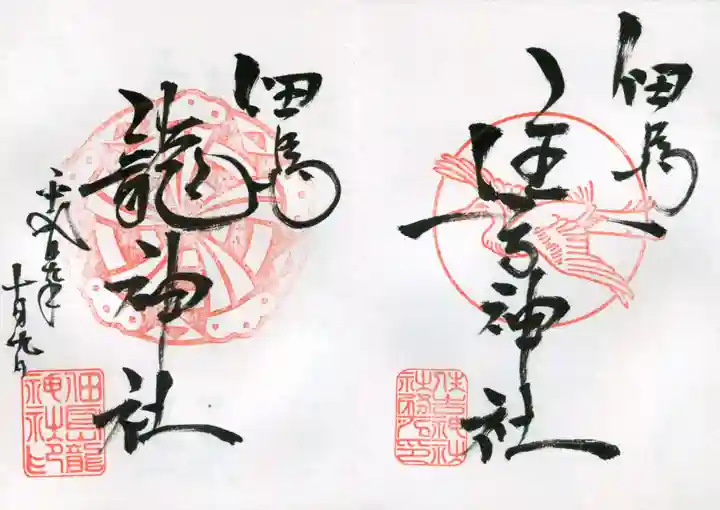 佃島
住吉神社
住吉神社
社務所印
佃島
龍神社
十月九日
佃島龍
神社印